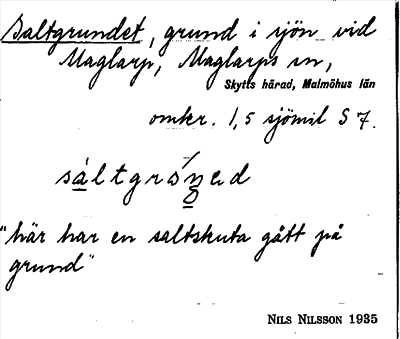 Saltgrundet, grund i sjön vid
Maglarp, Maglarps sn,
Skytts härad, Malmöhus län
omkr. 1,5 sjömil S 7.
"här har en saltskuta gått på
grund"
NILS NILSSON 1935